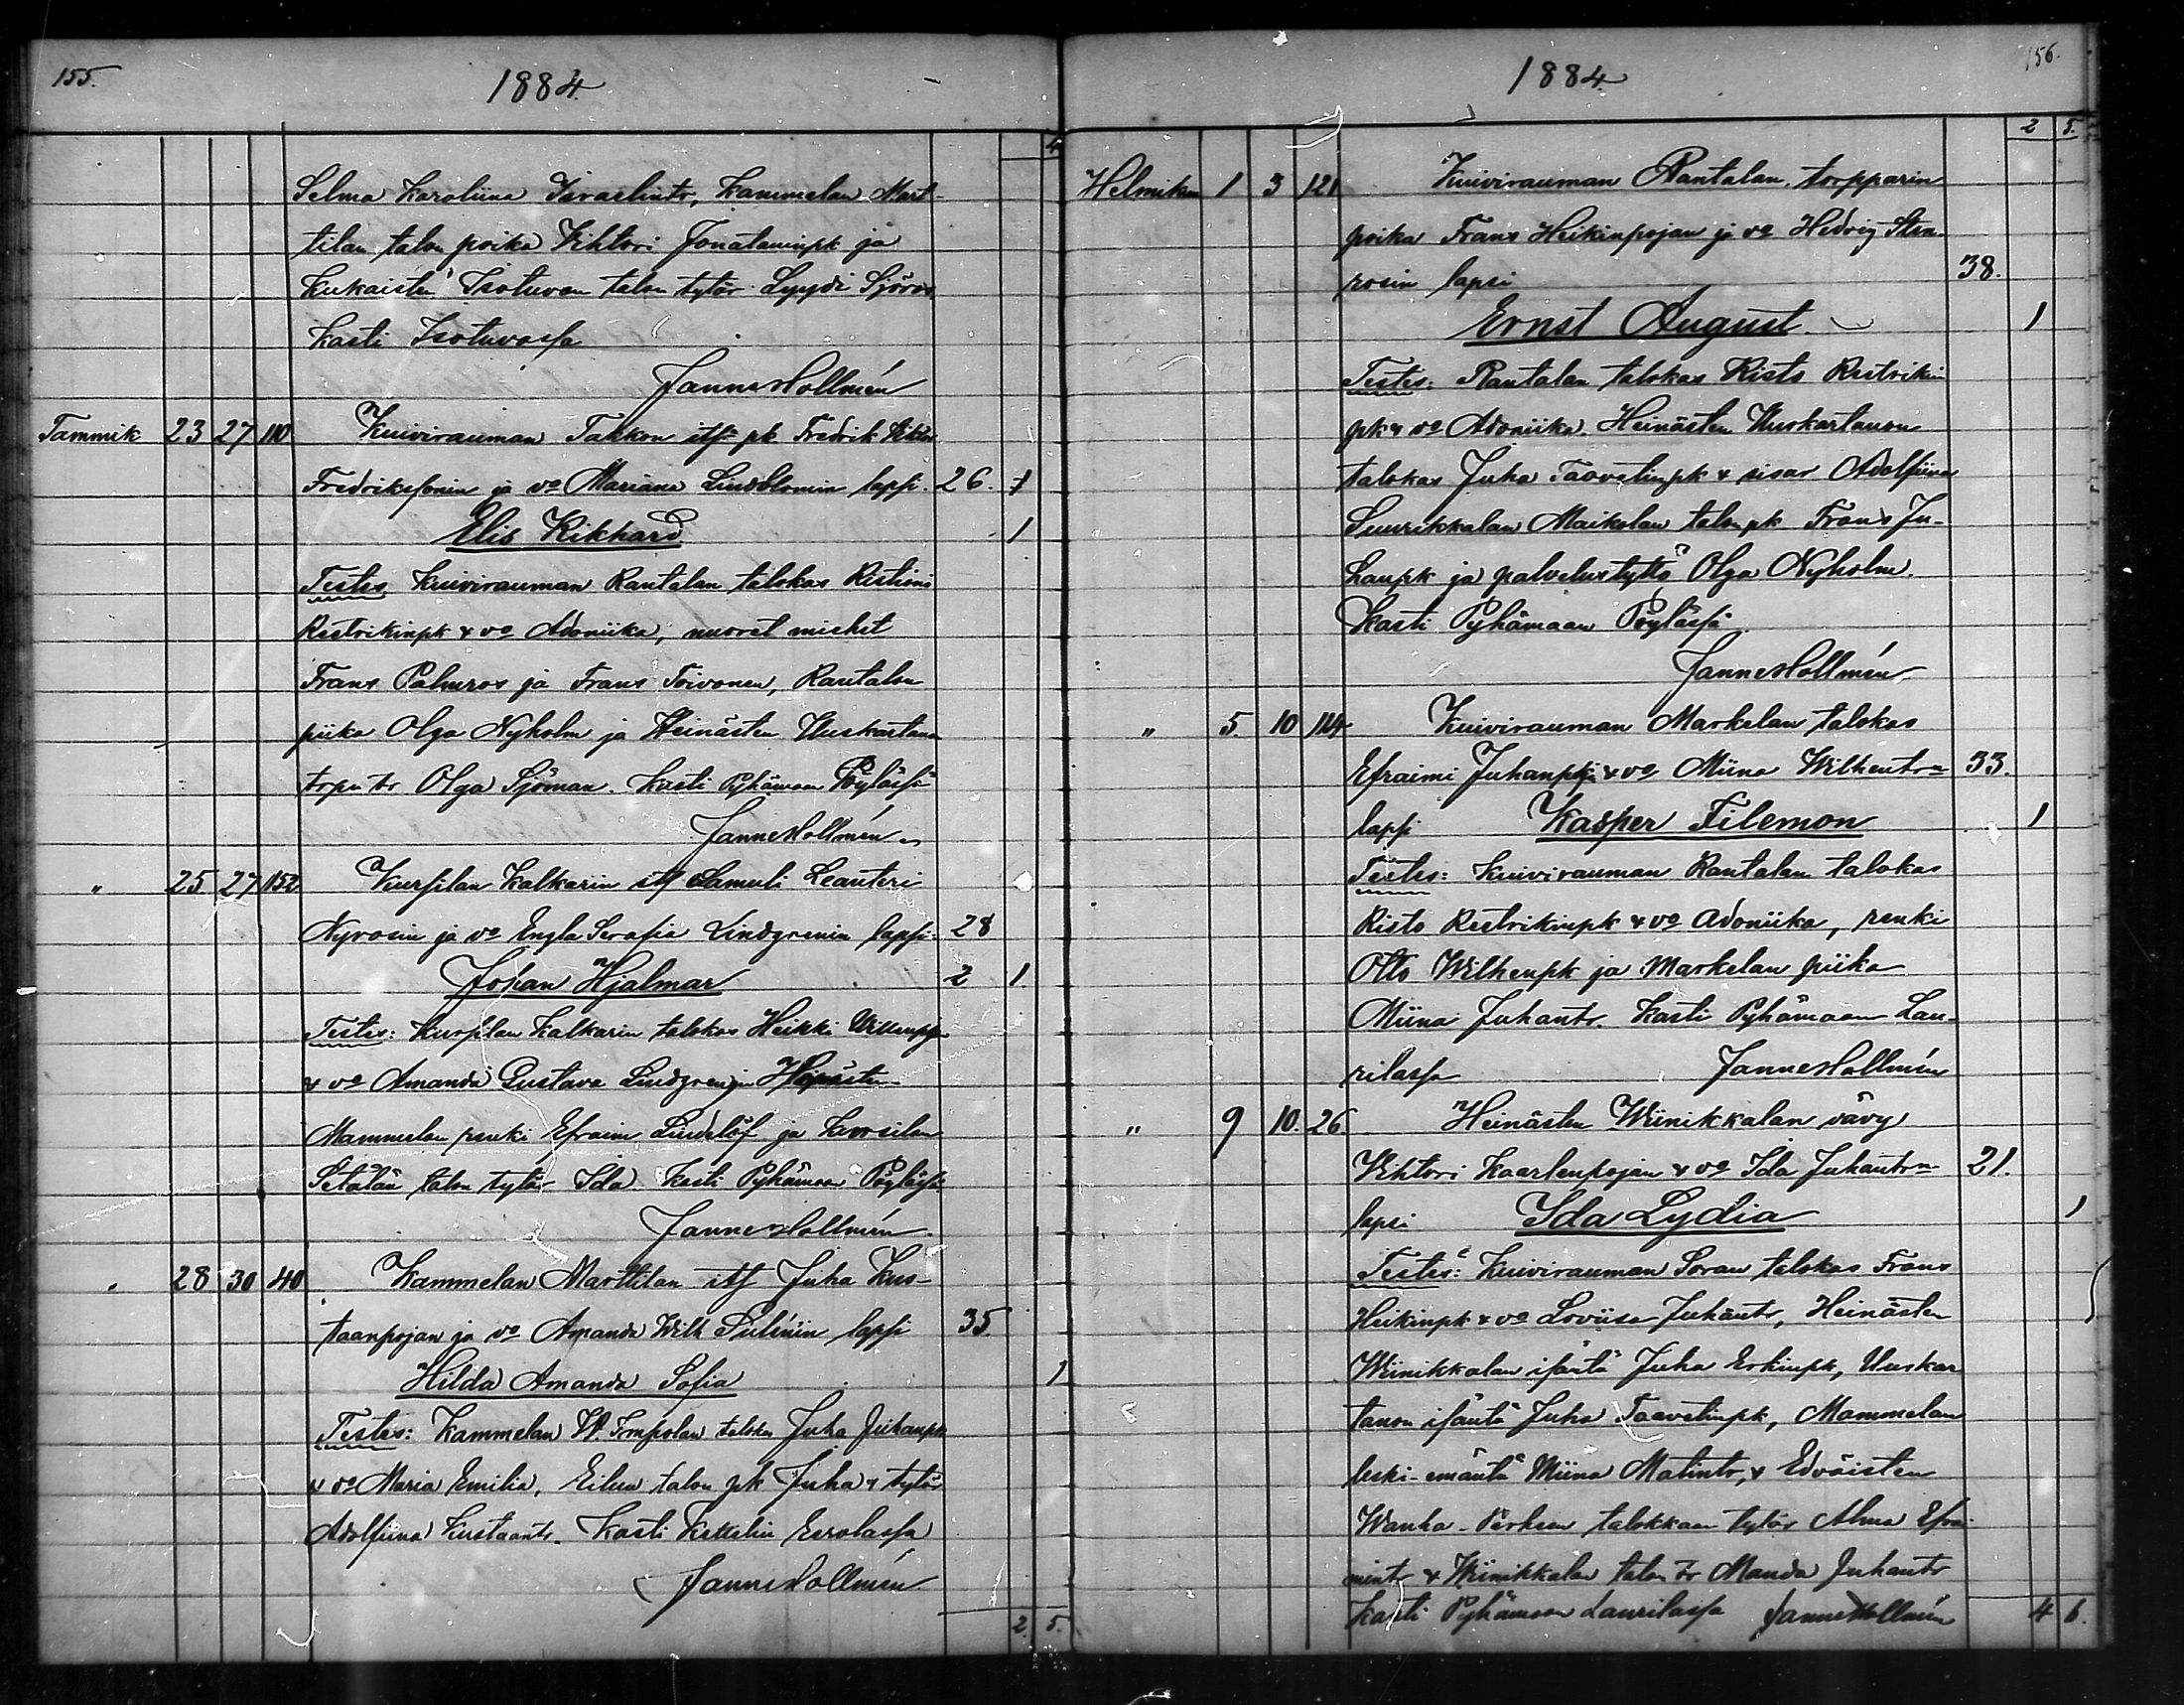 155.
1884.
4
Selma Karoliina Israelintr, Kammelan Mart-
tilan talon poika Vihtori Jonataninpk ja
Kukaisten Isotuvan talon tytär Lyydi Sjöros
Kasti Isotuvassa
Janne Hollmén
Tammik 23 27 110 Kuivirauman Takkon itsp pk Fredrik Viktor
Fredriksonin ja vo Mariana Lindblomin lapsi. 26. 1
Elis Rikhard 1
Testes Kuivirauman Rantalan talokas Ristiini
Restrikinpk & vo Adoniika, nuoret miehet
Frans Palmros ja Frans Toivonen, Rantalan
piika Olga Nyholm ja Heinästen Uuskartanon
torpn tr Olga Sjöman. Kasti Pyhämaan Pöylässä
Janne Hollmén
" 25 27 152 Kursilan Kalkarin its Samuli Leanteri
Nyrosin ja vo Engla Serafia Lindgrenin lapsi. 28
Johan Hjalmar 2 1.
Testes: Kursilan Kalkarin talokas Heikki Villenpoja
& vo Amanda Gustava Lindgren ja Heinästen
Mammelan renki Efraim Lindelöf ja Kursilan
Setälän talon tytär Ida. Kasti Pyhämaan Pöylässä
Janne Hollmén.
" 28 30 40 Kammelan Marttilan its Juha Kus-
taanpojan ja vo Amanda Wilh Sulinin lapsi 35.
Hilda Amanda Sofia 1
Testes: Kammelan W. Tompolan talokas Juha Juhanpk
& vo Maria Emilia, Eilun talon pk Juha & tytär
Adolfiina Kustaantr. Kasti Kettelin Eerolassa
Janne Hollmén
2. 5.
156.
1884.
2 5.
Helmikuu 1 3 121 Kuivirauman Rantalan torpparin
poika Frans Heikinpojan ja vo Hedvig Sten
rosin lapsi 38.
Ernst August. 1
Testes: Rantalan talokas Risto Restrikin
pk & vo Adoniika. Heinästen Uuskartanon
talokas Juha Taavetinpk & sisar Adolfiina
Suurikkalan Maikolan talon pk Frans Ju-
hanpk ja palvelustyttö Olga Nyholm.
Kasti Pyhämaan Pöylässä
Janne Hollmén
" 5. 10 114 Kuivirauman Markelan talokas
Efraimi Juhanpk & vo Miina Wilhentrn 33.
lapsi Kasper Filemon 1
Testes: Kuivirauman Rantalan talokas
Risto Restrikinpk & vo Adoniika, renki
Otto Wilhenpk ja Markelan piika
Miina Juhantr. Kasti Pyhämaan Lau-
rilassa Janne Hollmén
" 9 10. 26. Heinästen Wiinikkalan vävy
Vihtori Kaarlenpojan & vo Ida Juhantrn 21.
lapsi Ida Lydia 1
Testes: Kuivirauman Soran talokas Frans
Heikinpk & vo Loviisa Juhantr, Heinästen
Wiinikkalan isäntä Juha Erkinpk, Uuskar
tanon isäntä Juha Taavetinpk, Mammelan
leski-emäntä Miina Matintr, & Edväisten
Wanha-Perheen talokkaan tytär Alma Efrai-
mintr & Wiinikkalan talon tr Manda Juhantr
Kasti Pyhämaan Laurilassa Janne Hollmén 4 6.